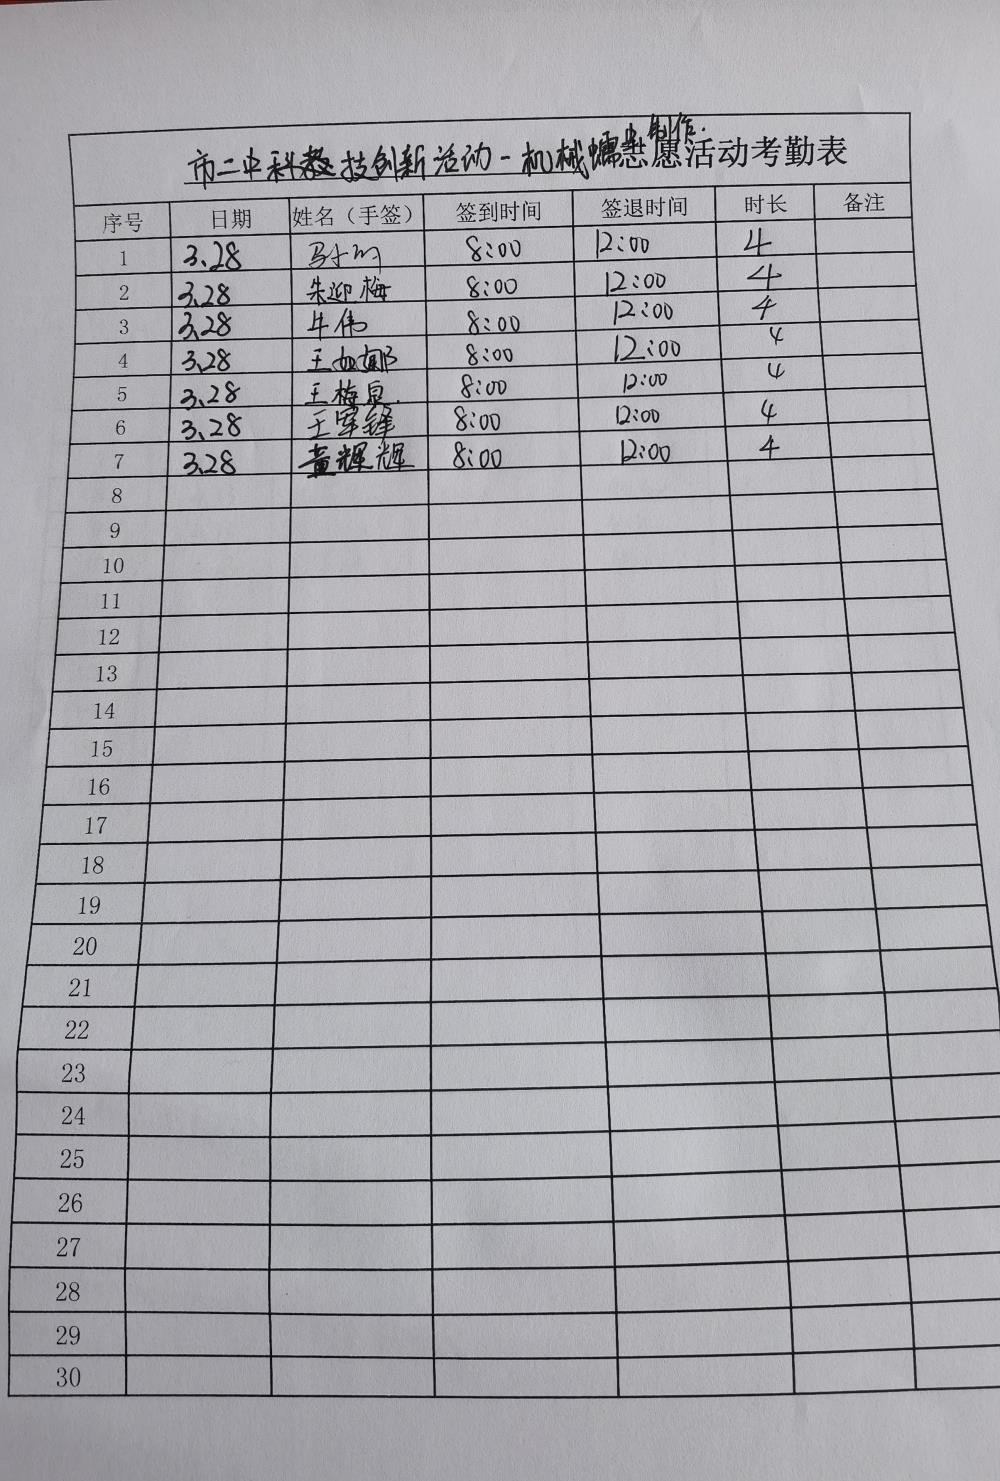 市二中科技创新活动-机械蠕虫制作.志愿活动考勤表
序号 日期 姓名（手签） 签到时间 签退时间 时长 备注
1 3.28 8:00 12:00 4
2 3.28 朱迎梅 8:00 12:00 4
3 3.28 牛伟 8:00 12:00 4
4 3.28 王如娜 8:00 12:00 4
5 3.28 王梅泉 8:00 12:00 4
6 3.28 王军锋 8:00 12:00 4
7 3.28 黄辉辉 8:00 12:00 4
8
9
10
11
12
13
14
15
16
17
18
19
20
21
22
23
24
25
26
27
28
29
30